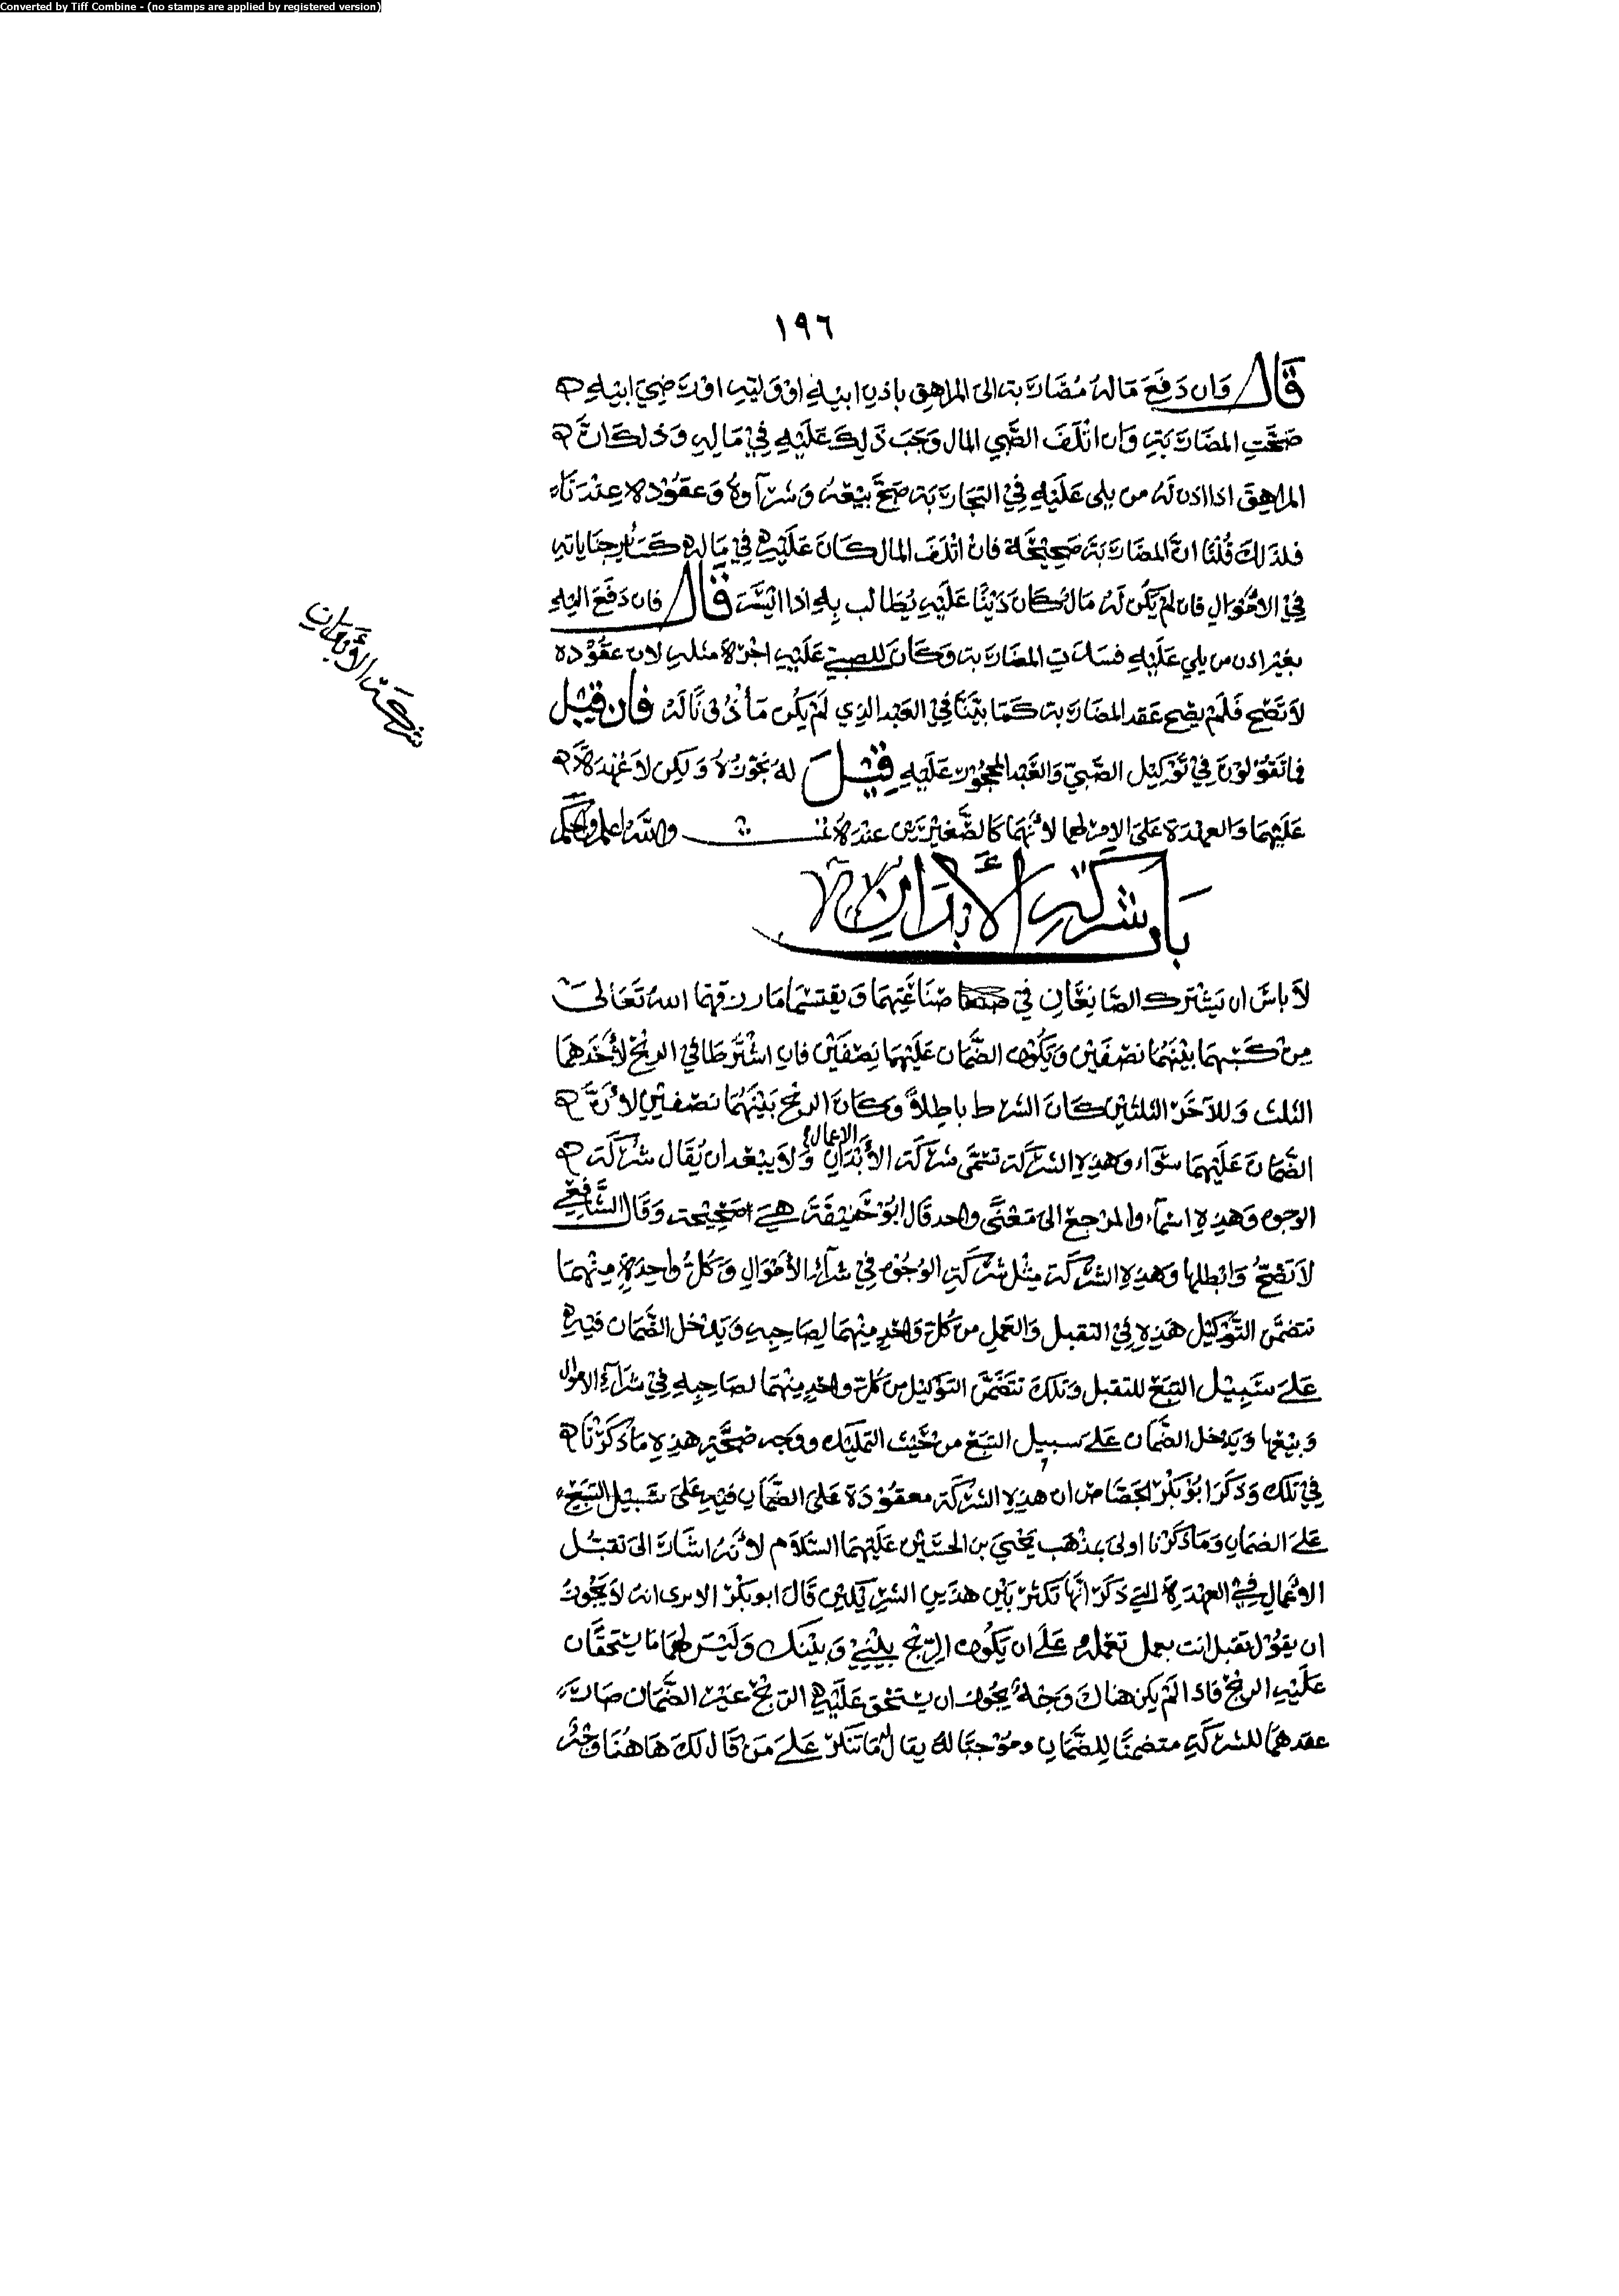 Converted by Tiff Combine - (no stamps are applied by registered version)
١٩٦
قال وان دفع ماله مضاربة الى المراهق باذن ابيه او وليه او وصي ابيه
صحت المضاربة وان اتلف الصبي المال وجب ذلك عليه في ماله وذلك ان
المراهق اذا اذن له من يلي عليه في التجارة صح بيعه وشرآوه وعقوده عندنا
فلذلك قلنا ان المضاربة صحيحة فان اتلف المال كان عليه في ماله كسائر جناياته
في الاموال فان لم يكن له مال كان دينا عليه يطالب به اذا ايسر قال فان دفع اليه
بغير اذن من يلي عليه فسدت المضاربة وكان للصبي عليه اجرة مثله لان عقوده
لا تصح فلم يصح عقد المضاربة كما بينا في العبد الذي لم يكن مأذونا له فان قيل
فما تقولون في توكيل الصبي والعبد المحجور عليه قيل له نجوزه ولكن لا عهدة
عليهما والعهدة على الامر لهما لأنهما كالصغيرين عندنا والله اعلم واحكم
باب شركة الأبدان
شركة الأبدان
لا باس ان يشترك الصانعان في صناعتهما ويقتسما ما رزقهما الله تعالى
من كسبهما بينهما نصفين ويكون الضمان عليهما نصفين فان اشترطا في الربح لأحدهما
الثلث وللآخر الثلثين كان الشرط باطلا وكان الربح بينهما نصفين لأن
الضمان عليهما سوآء وهذه الشركة تسمى شركة الأبدان والاعمال ولا يبعد ان يقال شركة
الوجوه وهذه اسمآء والمرجع الى معنى واحد قال ابو حنيفة هي صحيحة وقال الشافعي
لا تصح وابطلها وهذه الشركة مثل شركة الوجوه في شرآء الأموال وكل واحدة منهما
تتضمن التوكيل هذه في التقبل والعمل من كل واحد منهما لصاحبه ويدخل الضمان فيه
على سبيل التبع للتقبل وتلك تتضمن التوكيل من كل واحد منهما لصاحبه في شرآء الاموال
وبيعها ويدخل الضمان على سبيل التبع من حيث التمليك ووجه صحة هذه ما ذكرنا
في تلك وذكر ابو بكر الجصاص ان هذه الشركة معقودة على الضمان فيه على سبيل التبع
على الضمان وما ذكرنا اولى بمذهب يحيى بن الحسين عليهما السلام لأنه اشار الى تقبل
الأعمال في العهدة التي ذكر انها تكتب بين هذين الشريكين قال ابو بكر الا ترى انه لا يجوز
ان يقول تقبل انت بعمل تعمله على ان يكون الربح بيني وبينك وليس لهما ما يستحقان
عليه الربح فاذا لم يكن هناك وجه يجوز ان يستحق عليه الربح غير الضمان صار
عقدهما للشركة متضمنا للضمان وموجبا له يقال له ما تنكر على من قال لك هاهنا وجه